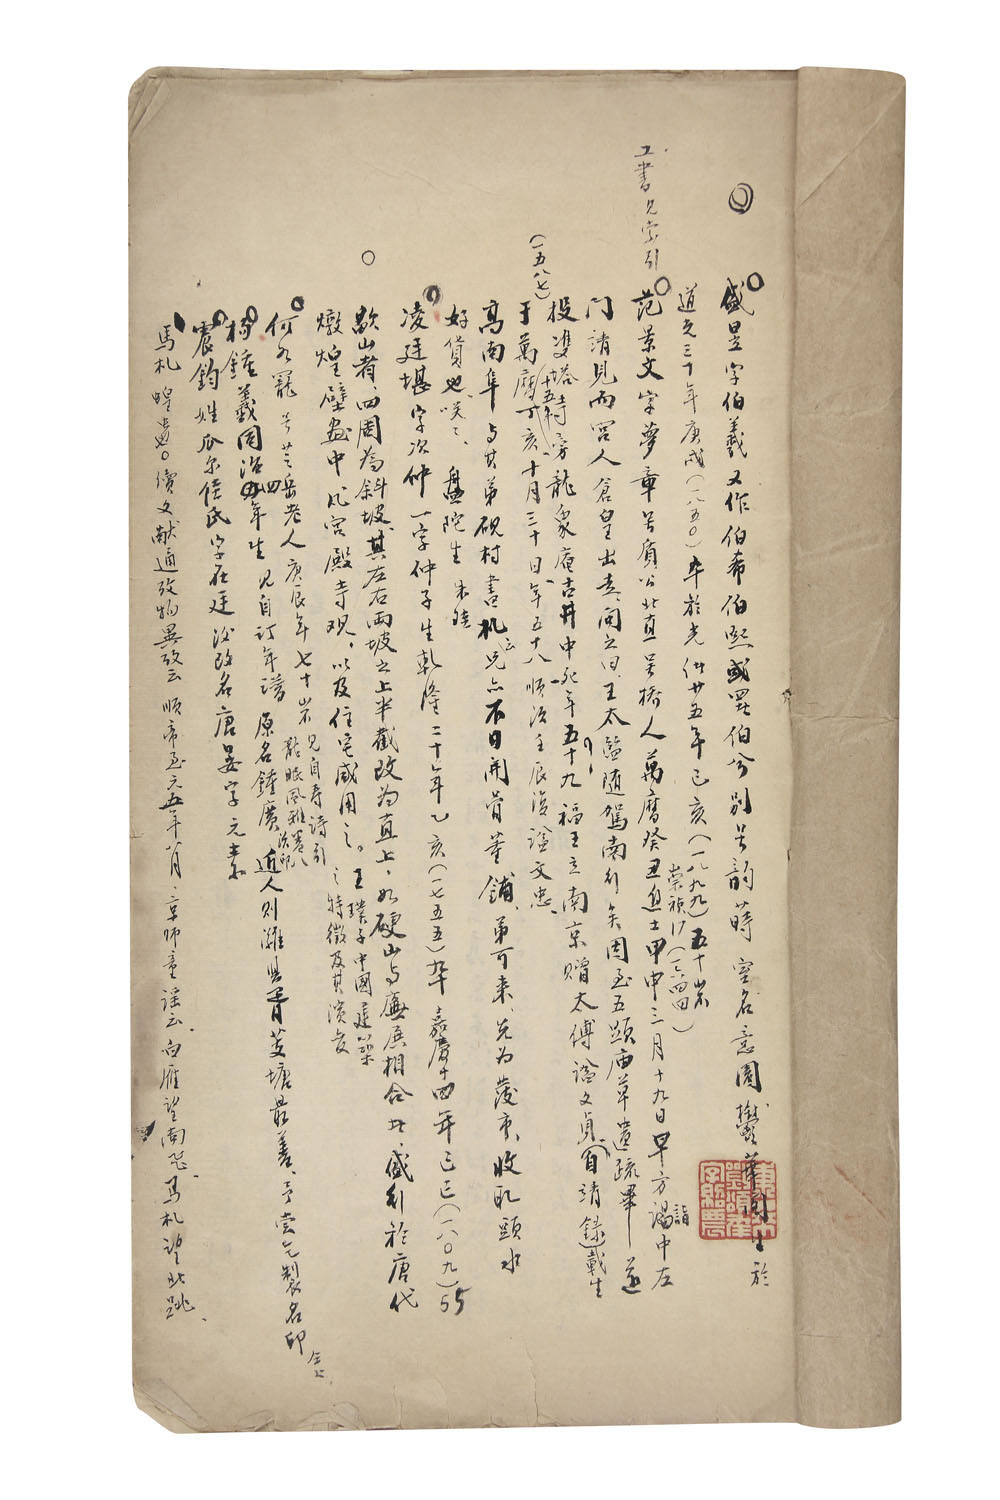 盛昱字伯羲又作伯希伯熙或署伯兮別号韵蒔室名意園鬱華閣生於
道光三十年庚戌(一八五〇)卒於光绪廿五年己亥(一八九九)五十岁
工書見索引
崇禎17(一六四四)
范景文字夢章号質公北直吴橋人萬曆癸丑進士甲申三月十九日早方謁中左
詣
门請見而宫人倉皇出走、问之曰、王太監随駕南行矣因至五顕庙草遺疏畢遂
投雙塔寺旁龍象庵古井中死年五十九福王立南京赠太傅謚文貞、自靖録載生
(一五八七)
于萬曆丁亥十月三十日、年五十八、順治壬辰復謚文忠、
(十五年)
高南阜与其弟硯村書札云兄亦不日開骨董鋪、弟可来、兄为發東、收取頭水
好貨也、咲々、盤陀生朱
凌廷堪字次仲一字仲子生乾隆二十年乙亥(一七五五)卒嘉慶十四年己巳(一八〇九)55
歇山者、四周為斜坡、其左右两坡之上半截改为直上、如硬山与廡殿相合者、盛行於唐代
燉煌壁画中凡宫殿寺观、以及住宅咸用之。王璞子中國建筑
之特徵及其演变
何如寵号芝岳老人庚辰年七十岁見自寿詩引
楊鍾羲同治四年生見自订年谱原名鍾廣近人则濰县
最善、予尝乞製名印
震鈞姓瓜尔佳氏字在廷後改名唐晏字元素
馬札 續文献通攷物異攷云順帝至元五年八月、京師童謡云、白雁望南飞、馬札望北跳、